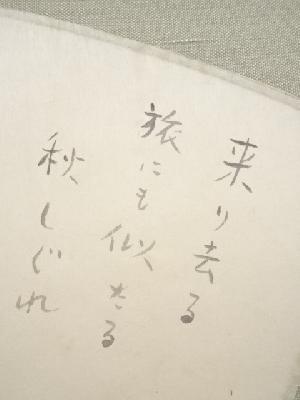 来り去る
旅にも似たる
秋しぐれ